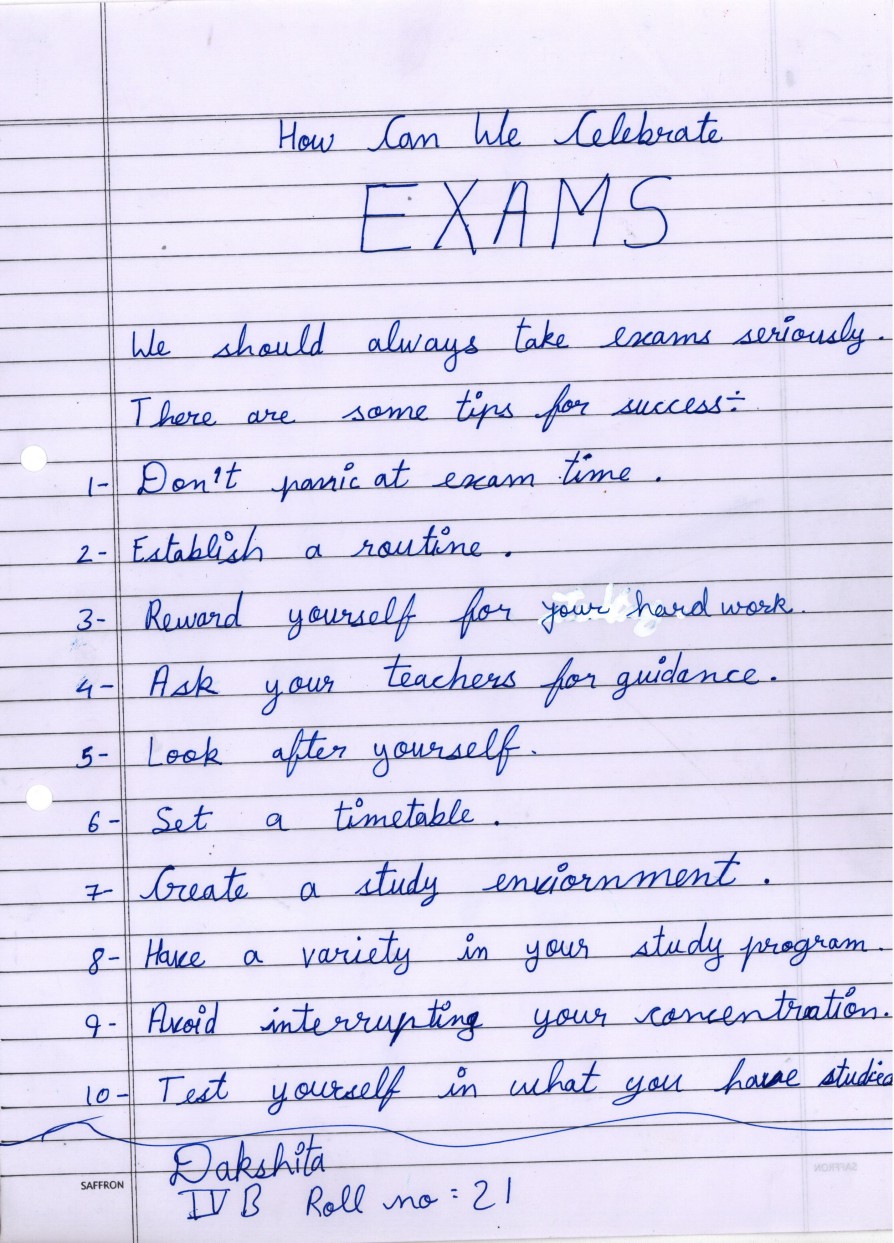 How Can We Celebrate
EXAMS
We should always take exams seriously.
There are some tips for success÷
1- Don't panic at exam time.
2- Establish a routine.
3- Reward yourself for your hard work.
4- Ask your teachers for guidance.
5- Look after yourself.
6- Set a timetable.
7- Create a study enviornment.
8- Have a variety in your study program.
9- Avoid interrupting your concentration.
10- Test yourself in what you have studied
Dakshita
SAFFRON
IV B Roll no : 21